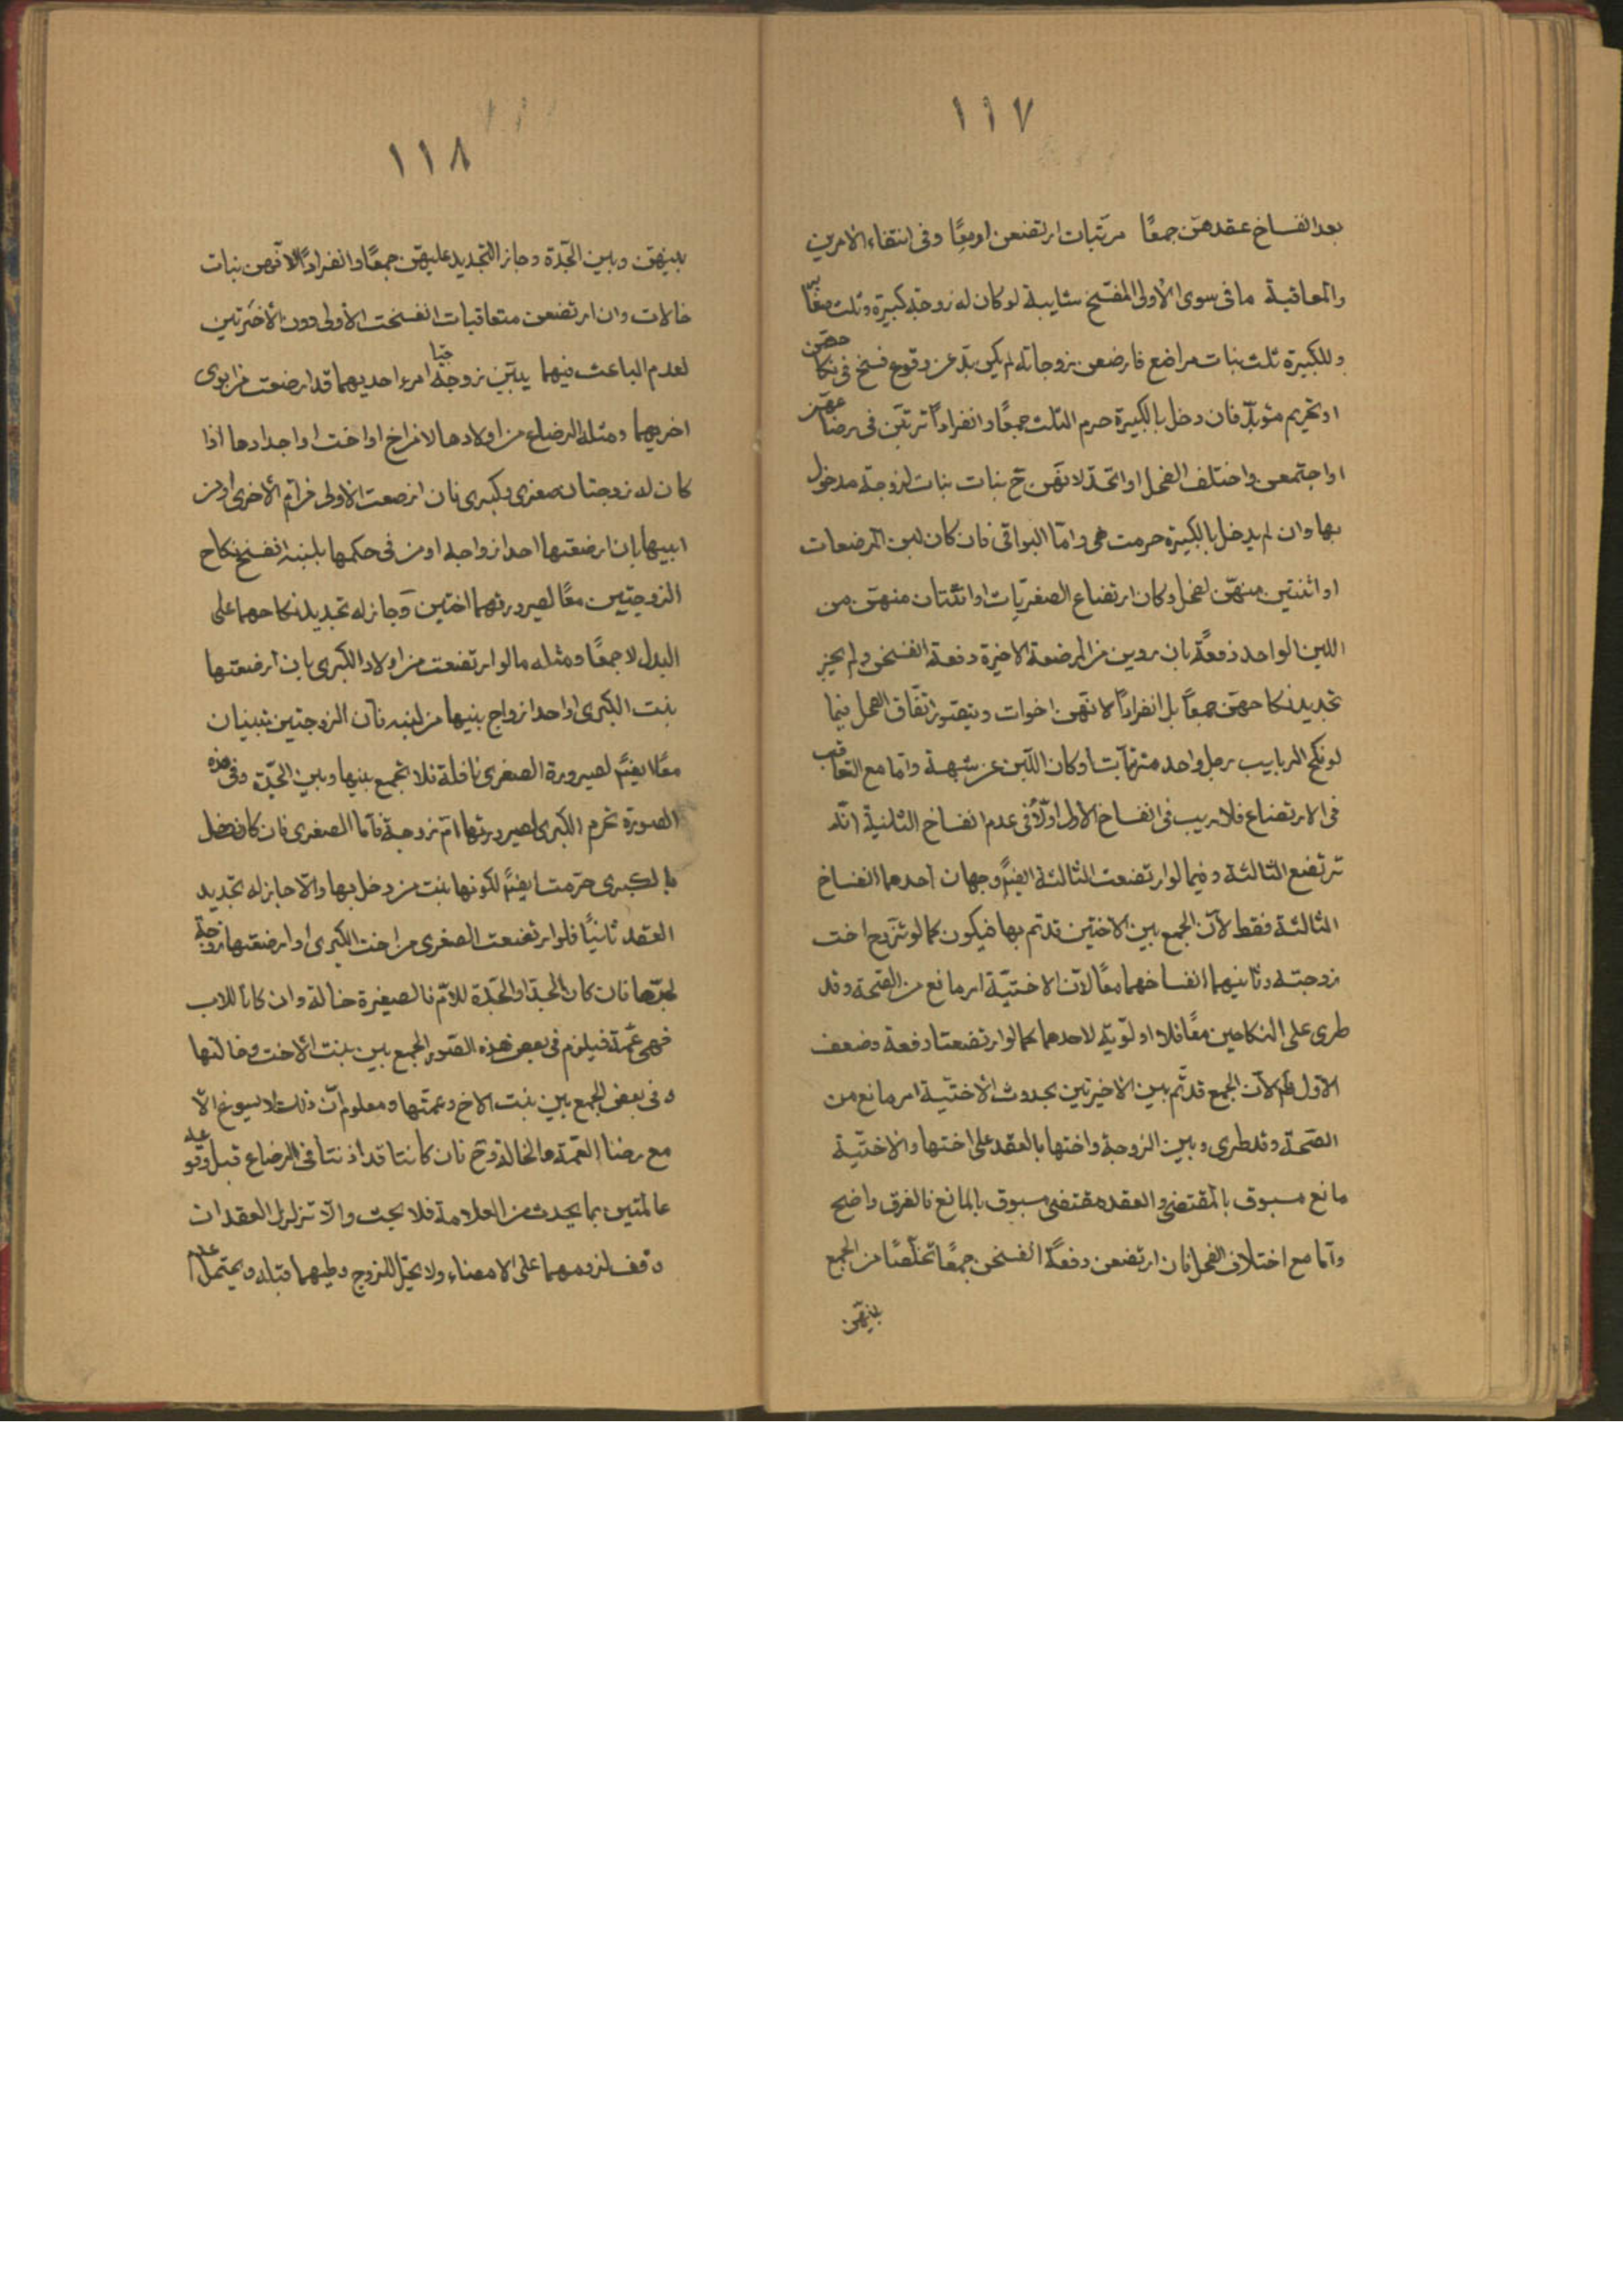 ١١٧
بعد انفساخ عقدهن جمعًا مرتبات ارتضعن او معًا وفى انتفاء الامرين
والمعاقبة ما فى سوى الأولى المفتتح شايبة لو كان له زوجة كبيرة وثلث صغاير
وللكبيرة ثلث بنات مراضع فارضعن زوجاته لم يكن بدّ عن وقوع فسخ فى نكاحهن
او تحريم مؤبد فان دخل بالكبيرة حرم الثلث جمعًا وانفرادًا ترتبن فى رضاعهن
او اجتمعن واختلف الفحل او اتحد لانهن ح بنات بنات لزوجة مدخول
بها وان لم يدخل بالكبيرة حرمت هى وامّا البواقى فان كان لبن المرضعات
او اثنتين منهنّ لفحل وكان ارتضاع الصغريات او اثنتان منهن من
اللبن الواحد دفعة بان روين من المرضعة الاخيرة دفعة انفسخن ولم يجز
تجديد نكاحهن جمعاً بل انفرادًا لانهن اخوات ويتصور اتفاق الفحل فيما
لو نكح الربايب رجل واحد مترتبات او كان اللبن عن شبهة وامّا مع التعاقب
فى الارتضاع فلا ريب فى انفساخ الاولى اولًا وفى عدم انفساخ الثانية انّه
ترتضع الثالثة وفيما لو ارتضعت الثالثة ايضًا وجهان احدهما انفساخ
الثالثة فقط لأن الجمع بين الاختين قد تم بها فيكون كما لو تزوج اخت
زوجته وثانيهما انفساخهما معًا لانّ الاختيّة امر مانع من الصحة وقد
طرى على النكاحين معًا فلا اولويّة لاحدهما كما لو ارتضعتا دفعة وضعف
الاوّل ظم لانّ الجمع قد تم بين الاخيرتين بحدوث الاختيّة امر مانع من
الصحة وقد طرى وبين الزوجة واختها بالعقد على اختها والاختيّة
مانع مسبوق بالمقتضى والعقد مقتضى مسبوق بالمانع فالفرق واضح
وامّا مع اختلاف الفحل فان ارتضعن دفعة انفسخن جمعًا تخلّصًا من الجمع
بينهن
١١٨
بينهن وبين الجدة وجاز التجديد عليهن جمعًا وانفرادًا لانهن بنات
خالات وان ارتضعن متعاقبات انفسخت الأولى دون الأخرتين
لعدم الباعث فيهما يبيّن زوجتا امرء احديهما قد ارضعت من ابوى
اخريهما ومثله الرضاع من اولادها لا من اخ او اخت او اجدادها اذا
كان له زوجتان صغرى وكبرى فان ارضعت الاولى من ام الأخرى او من
ابيها بان ارضعتها احد ازواجه او من فى حكمها بلبنه انفسخ نكاح
الزوجتين معًا لصيرورتهما اختين وجاز له تجديد نكاحهما على
البدل لا جمعًا ومثله ما لو ارتضعت من اولاد الكبرى بان ارضعتها
بنت الكبرى او احد ازواج بنيها من لبنه فان الزوجتين تبينان
معًا ايضًا لصيرورة الصغرى نافلة فلا تجمع بينها وبين الجدّة وفى هذه
الصورة تحرم الكبرى لصيرورتها امّ زوجة فامّا الصغرى فان كان دخل
بالكبرى حرّمت ايضًا لكونها بنت من دخل بها والّا جاز له تجديد
العقد ثانيًا فلو ارتضعت الصغرى من اخت الكبرى او ارضعتها زوجة
لجدها فان كان الجد او الجدّة للامّ فالصغيرة خالة وان كانا للاب
فهى عمّة فيلزم فى بعض هذه الصور الجمع بين بنت الأخت وخالتها
وفى بعض الجمع بين بنت الاخ وعمّتها ومعلوم انّ ذلك لا يسوغ الّا
مع رضا العمة والخالة وح فان كانتا قد اذنتا فى الرضاع قبل وقوعه
عالمتين بما يحدث من العلامة فلا بحث والّا تزلزل العقدان
وقف لزومهما على الامضاء ولا يحل للزوج وطيهما قبله ويحتمل عدم